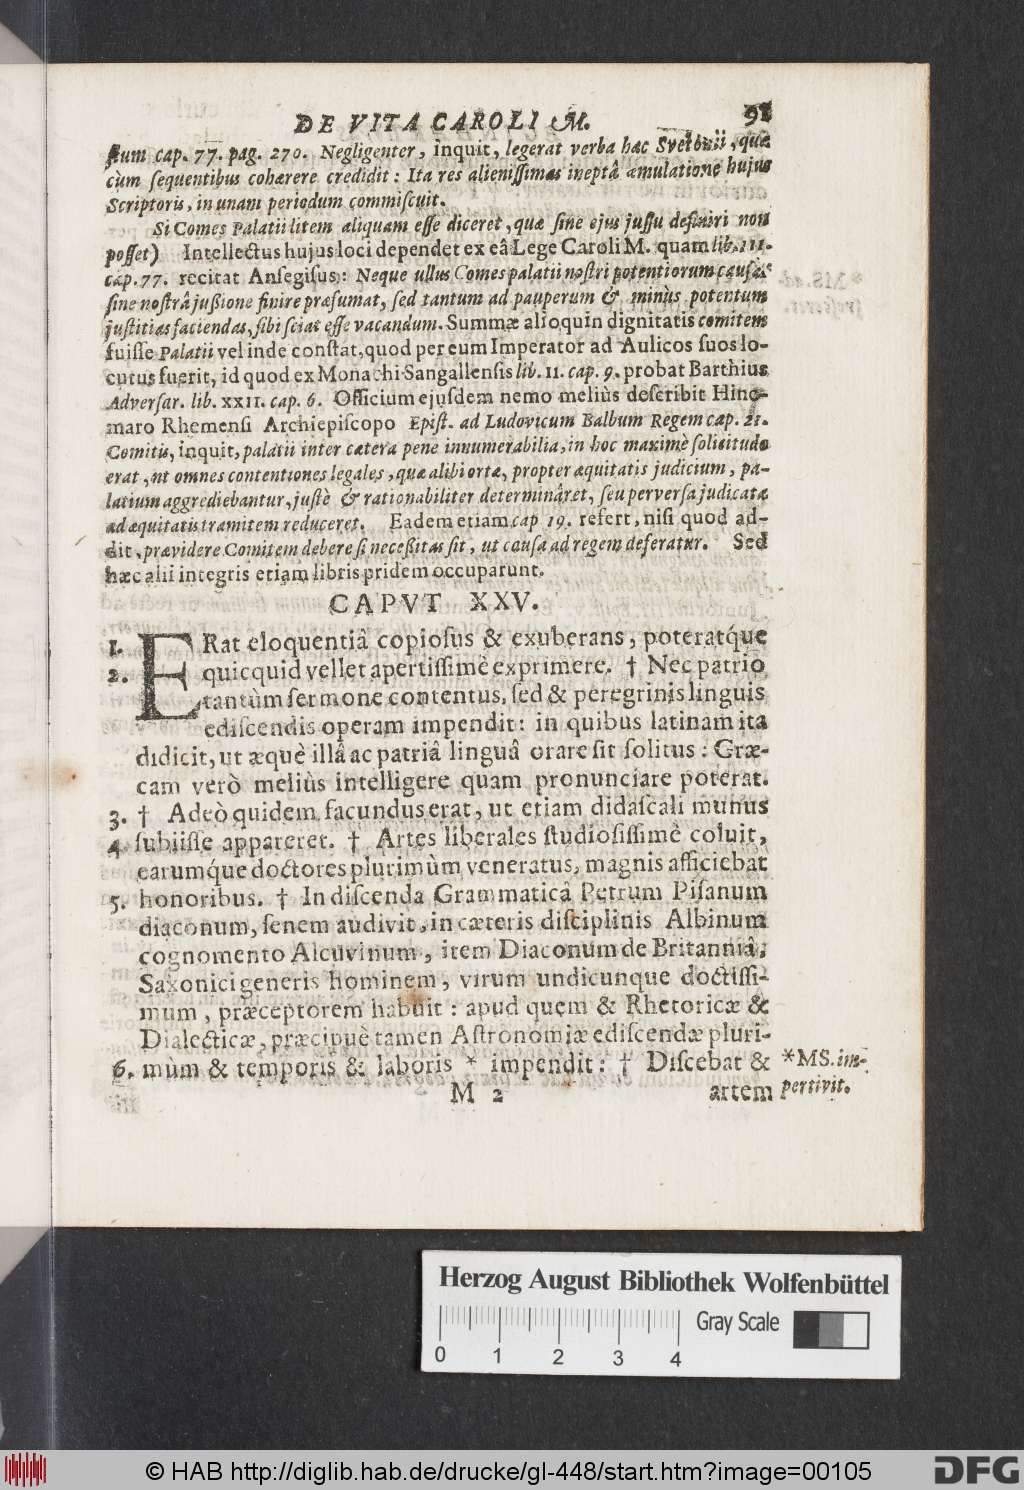 DE VITA CAROLI M. 91
sium cap. 77. pag. 270. Negligenter, inquit, legerat verba hæc Svetonii, quæ
cùm sequentibus cohærere credidit: Ita res alienissimas ineptâ æmulatione hujus
Scriptoris, in unam periodum commiscuit.
Si Comes Palatii litem aliquam esse diceret, quæ sine ejus jussu definiri non
posset) Intellectus hujus loci dependet ex eâ Lege Caroli M. quam lib. III.
cap. 77. recitat Ansegisus: Neque ullus Comes palatii nostri potentiorum causas
sine nostrâ jussione finire præsumat, sed tantum ad pauperum & minùs potentum
justitias faciendas, sibi sciat esse vacandum. Summæ alioquin dignitatis comitem
fuisse Palatii vel inde constat, quod per eum Imperator ad Aulicos suos lo-
cutus fuerit, id quod ex Monachi Sangallensis lib. II. cap. 9. probat Barthius
Adversar. lib. XXII. cap. 6. Officium ejusdem nemo meliùs describit Hinc-
maro Rhemensi Archiepiscopo Epist. ad Ludovicum Balbum Regem cap. 21.
Comitis, inquit, palatii inter cætera pene innumerabilia, in hoc maximè solicitudo
erat, ut omnes contentiones legales, quæ alibi ortæ, propter æquitatis judicium, pa-
latium aggrediebantur, justè & rationabiliter determinâret, seu perversa judicata
ad æquitatis tramitem reduceret. Eadem etiam cap 19. refert, nisi quod ad-
dit, prævidere Comitem debere si necessitas sit, ut causa ad regem deferatur. Sed
hæc alii integris etiam libris pridem occuparunt.
CAPVT XXV.
1. ERat eloquentiâ copiosus & exuberans, poteratq́ue
2. quicquid vellet apertissimè exprimere. † Nec patrio
tantùm sermone contentus, sed & peregrinis linguis
ediscendis operam impendit: in quibus latinam ita
didicit, ut æquè illâ ac patriâ linguâ orare sit solitus: Græ-
cam verò meliùs intelligere quam pronunciare poterat.
3. † Adeò quidem facundus erat, ut etiam didascali munus
4. subiisse appareret. † Artes liberales studiosissimè coluit,
earumq́ue doctores plurimùm veneratus, magnis afficiebat
5. honoribus. † In discenda Grammaticâ Petrum Pisanum
diaconum, senem audivit, in cæteris disciplinis Albinum
cognomento Alcuvinum, item Diaconum de Britanniâ,
Saxonici generis hominem, virum undicunque doctissi-
mum, præceptorem habuit: apud quem & Rhetoricæ &
Dialecticæ, præcipuè tamen Astronomiæ ediscendæ pluri-
6. mùm & temporis & laboris * impendit: † Discebat & *MS. im-
M 2 artem pertivit.
Herzog August Bibliothek Wolfenbüttel
Gray Scale
0 1 2 3 4
© HAB http://diglib.hab.de/drucke/gl-448/start.htm?image=00105
DFG